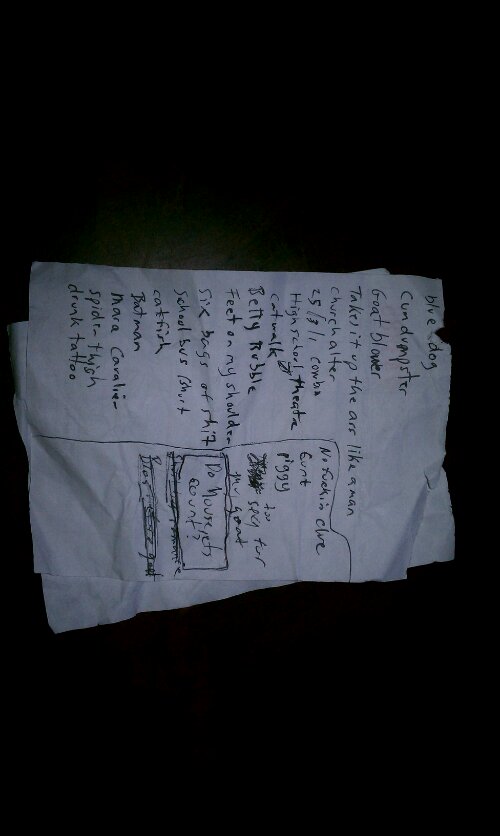 blue dog
Cumdumpster
Goat blower
Takes it up the ass like a man
Church alter
25/8/1 combo
High school theatre
catwalk
Betty Rubble
Feet on my shoulder
Six bags of shit
School bus
catfish
Batman
Mara Cavalier
spider thigh
drunk tattoo
No fuckin clue
Cunt
piggy
too
spicy for
your goat
Do Mousejets
count?